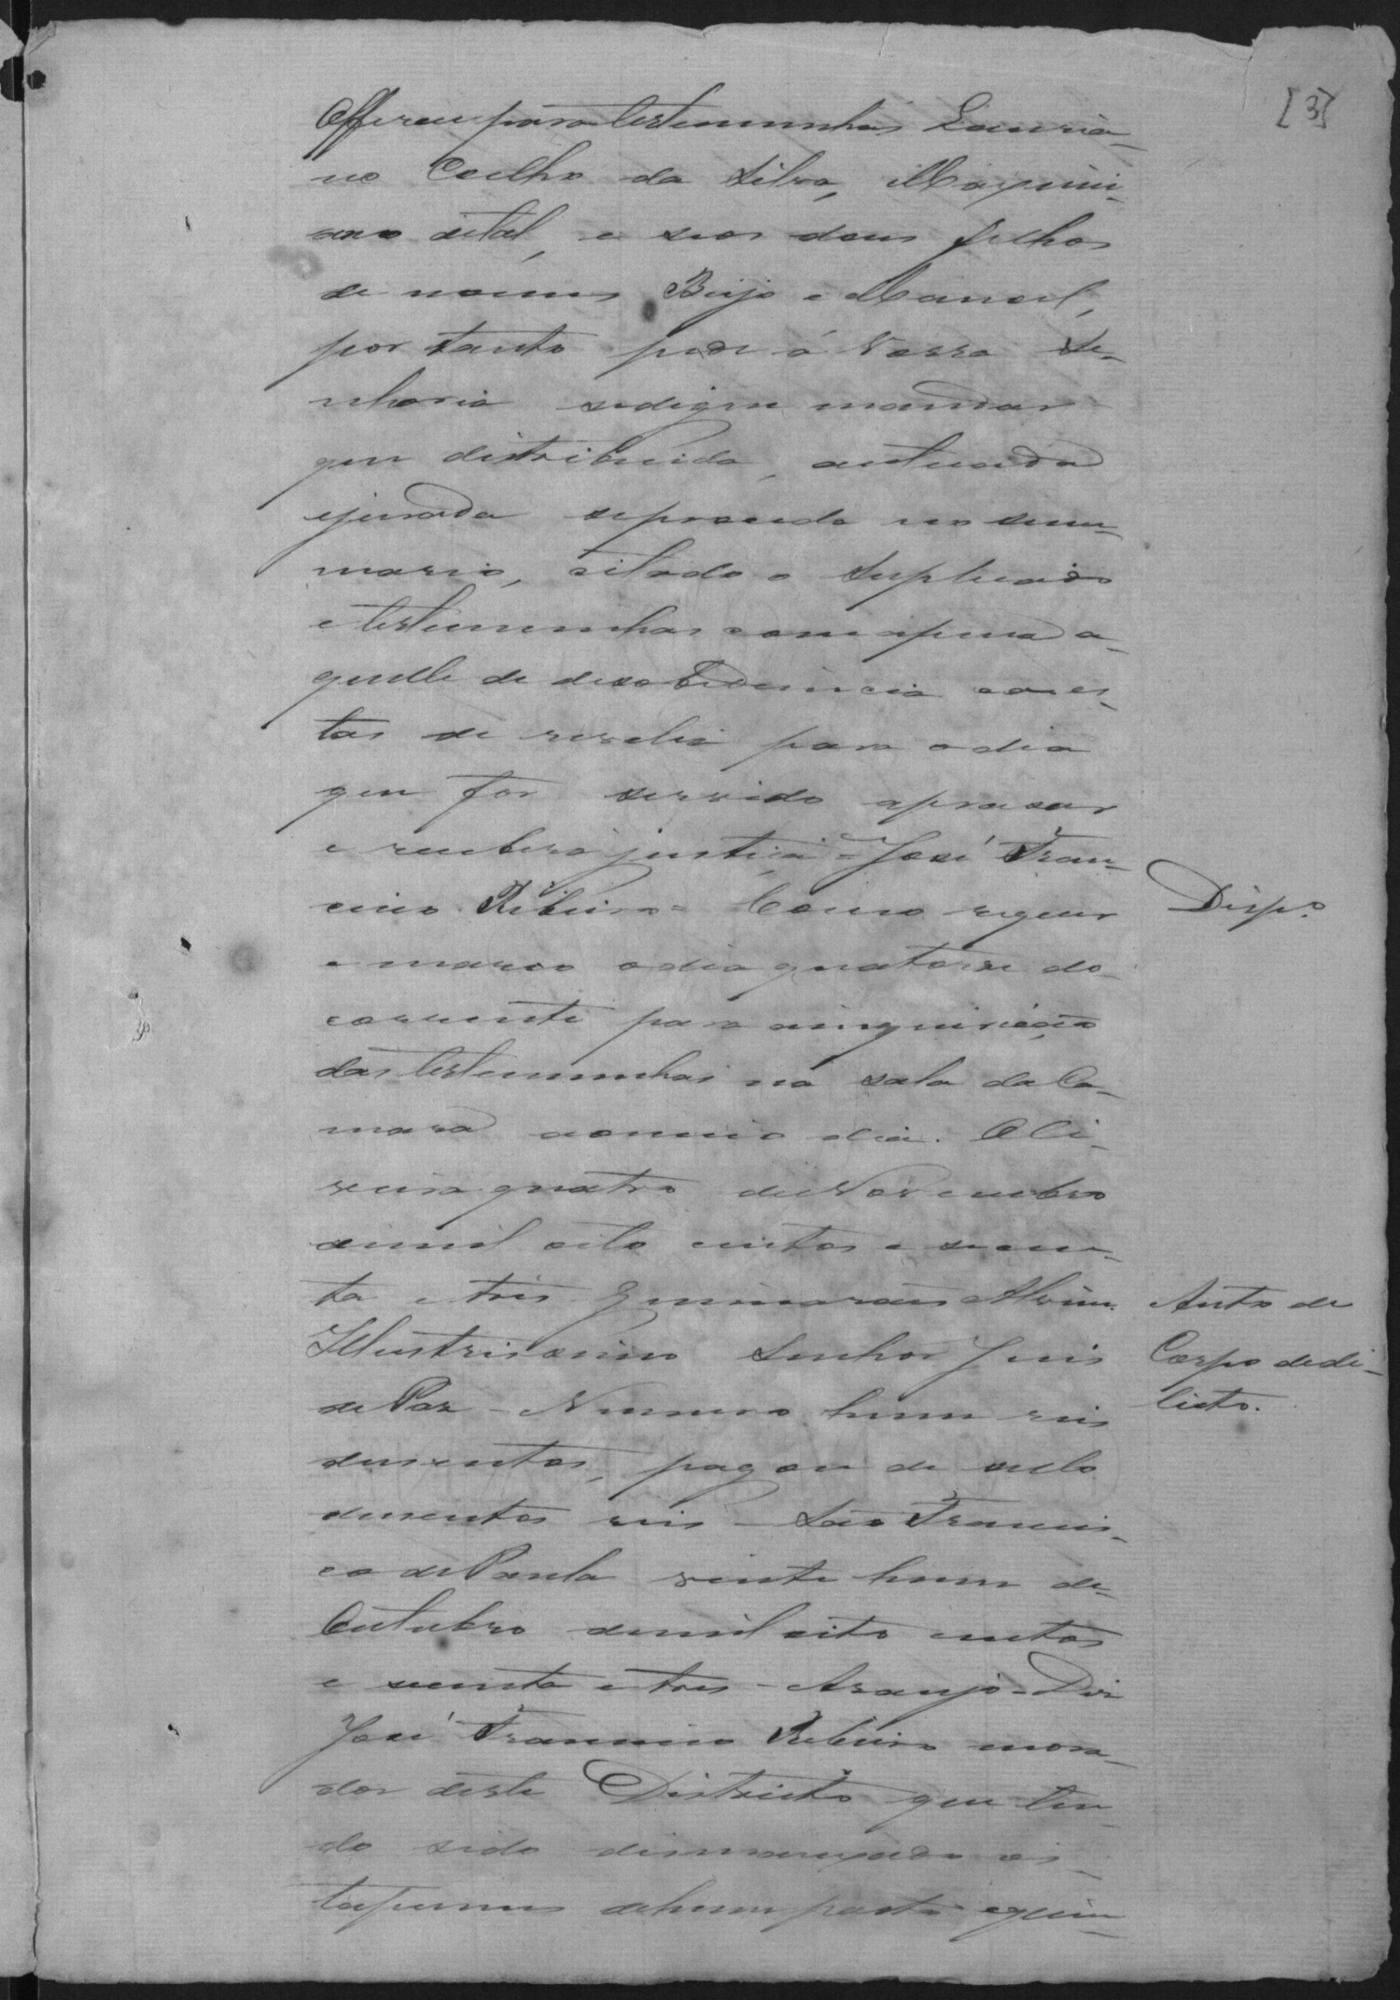 [3]
Offereu para testemunhas Lauria-
no Coelho da Silva, Maximi-
ano de tal, e seos dous filhos
de nomes Beijo e Manoel,
por tanto pede á Vossa Se-
nhoria sedigne mandar
que distribuida, autuada
ejurada seproceda no sum-
mario, citado o Supplicado
e testemunhas com apena a-
quelle de desobediencia e a es-
tas de revelia para o dia
que for servido aprasar
e receberá justiça = José Fran-
cisco Ribeiro = Como requer
e marco odia quatorze do
corrente para ainquirição
das testemunhas na sala da Ca-
mara ao meio dia. Oli-
veira quatro de Novembro
demil oito centos e secen-
ta e tres Guimarães Alvim.
Illustrissimo Senhor Juis
de Paz - Numero hum reis
dusentos, pagou de sello
dusentos reis - São Francis-
co de Paula vinte hum de
Outubro demil oito centos
e secenta e tres - Araujo - Diz
José Francisco Ribeiro mora-
dor deste Districto que ten-
do sido
tapumes dehum pasto
Disp.o
Auto de
Corpo dedi-
licto.